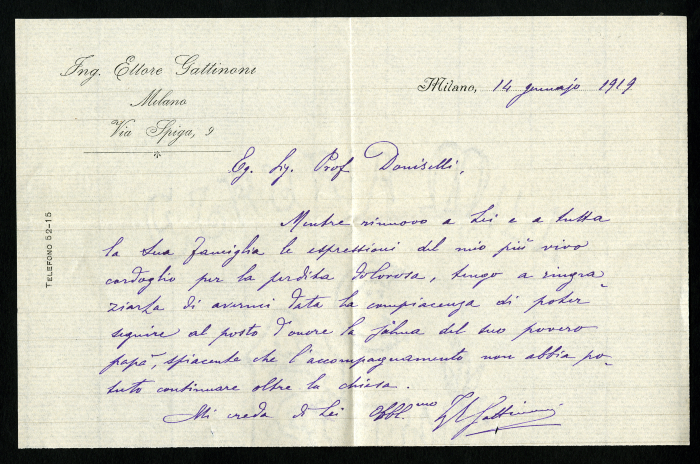 Ing. Ettore Gattinoni
Milano
Via Spiga, 9
Milano, 14 gennajo 1919
Eg. Sig. Prof Doniselli,
Mentre rinnovo a Lei e a tutta
la Sua famiglia le espressioni del mio più vivo
cordoglio per la perdita dolorosa, tengo a ringra
ziarLa di avermi data la compiacenza di poter
seguire al posto d'onore la salma del suo povero
papà, spiacente che l'accompagnamento non abbia po-
tuto continuare oltre la chiesa.
Mi creda di Lei Obbl.mo Gattinoni
TELEFONO 52-15